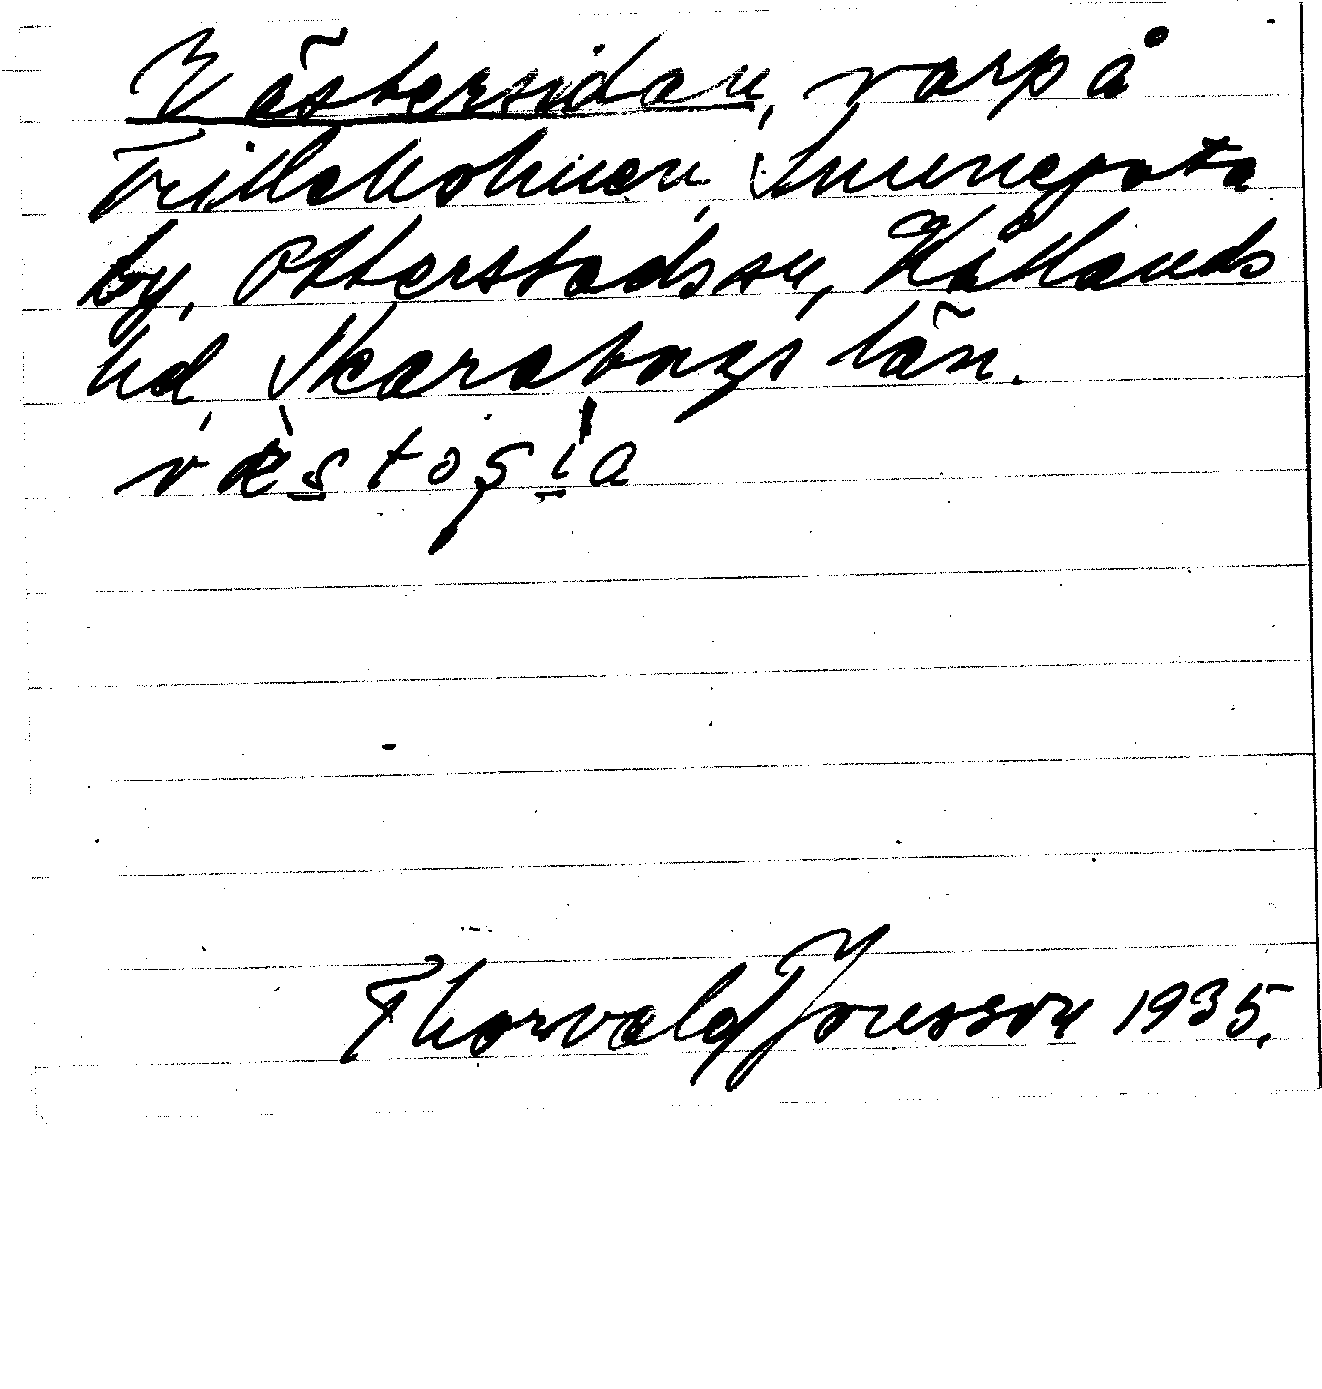 Västersidan, varp å
Trilleholmen, Sunneråta
by, Otterstads sn, Kållands
hd, Skaraborgs län.
Thorvald Jonsson 1935.